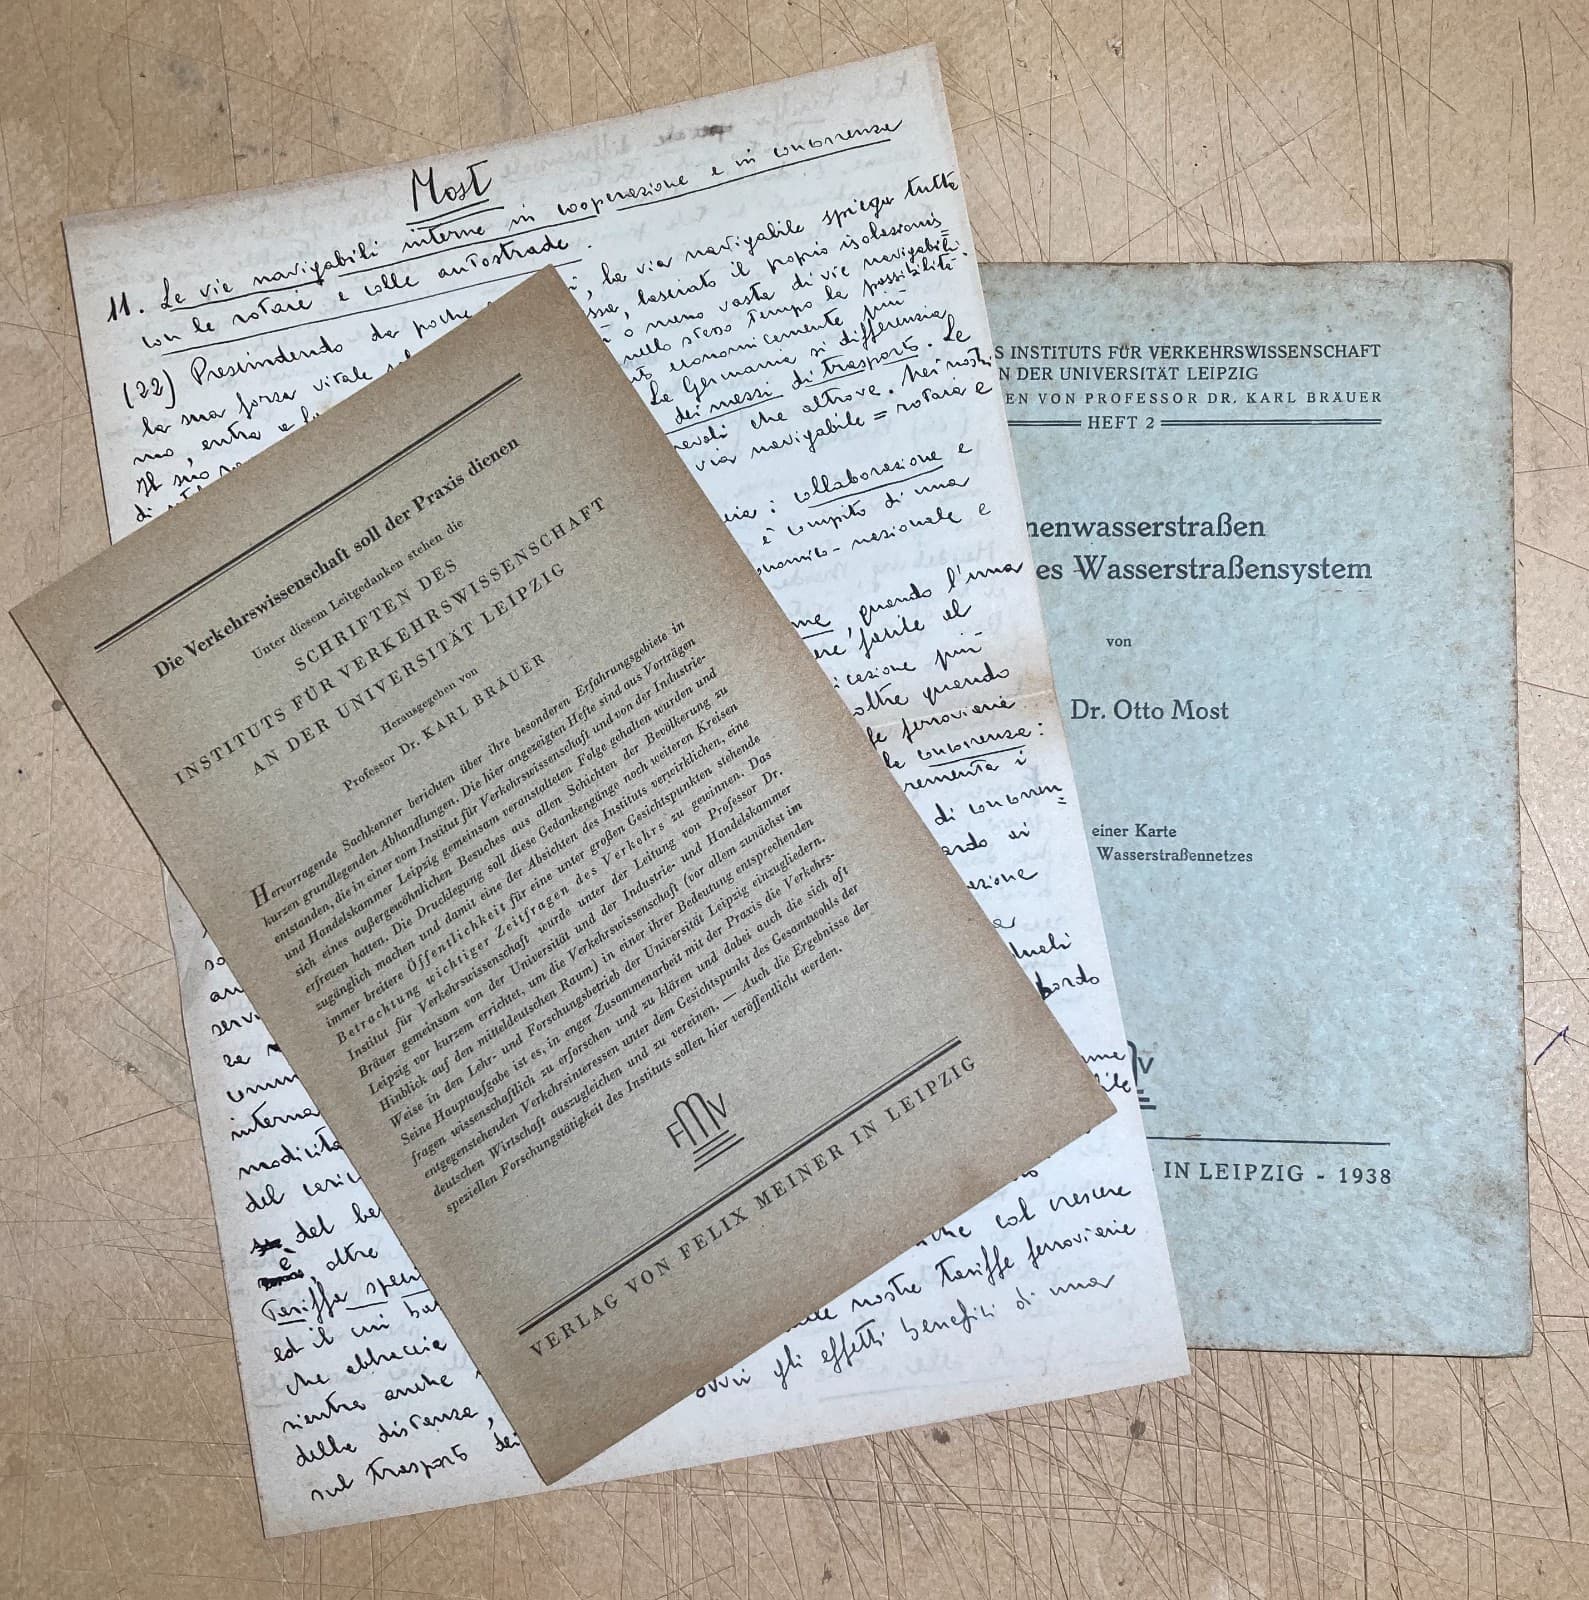 Most
11. Le vie navigabili interne in cooperazione e in concorrenza
con le rotaie e colle autostrade.
(22) Prescindendo da poche
la sua forza vitale
, la via navigabile spiega tutta
mo, entra e
lasciato il proprio isolazionis=
Il suo
o meno vasta di vie navigabili
di
nello stesso tempo la possibilità
economicamente più
La Germania si differenzia
dei mezzi di trasporto. Le
che altrove. Nei nostri
via navigabile = rotaia e
: collaborazione e
è compito di una
economico-nazionale e
, quando l'una
facile al
più
oltre quando
ferroviarie
la concorrenza:
i
di concorren=
bordo
interna
del
del
, oltre
Tariffa
ed il cui
che abbraccia
rientra anche
della distanza,
sul trasporto dei
che col crescere
nostre tariffe ferroviarie
gli effetti benefici di una
Die Verkehrswissenschaft soll der Praxis dienen
Unter diesem Leitgedanken stehen die
SCHRIFTEN DES
INSTITUTS FÜR VERKEHRSWISSENSCHAFT
AN DER UNIVERSITÄT LEIPZIG
Herausgegeben von
Professor Dr. KARL BRÄUER
Hervorragende Sachkenner berichten über ihre besonderen Erfahrungsgebiete in
kurzen grundlegenden Abhandlungen. Die hier angezeigten Hefte sind aus Vorträgen
entstanden, die in einer vom Institut für Verkehrswissenschaft und von der Industrie-
und Handelskammer Leipzig gemeinsam veranstalteten Folge gehalten wurden und
sich eines außergewöhnlichen Besuches aus allen Schichten der Bevölkerung zu
erfreuen hatten. Die Drucklegung soll diese Gedankengänge noch weiteren Kreisen
zugänglich machen und damit eine der Absichten des Instituts verwirklichen, eine
immer breitere Öffentlichkeit für eine unter großen Gesichtspunkten stehende
Betrachtung wichtiger Zeitfragen des Verkehrs zu gewinnen. Das
Institut für Verkehrswissenschaft wurde unter der Leitung von Professor Dr.
Bräuer gemeinsam von der Universität und der Industrie- und Handelskammer
Leipzig vor kurzem errichtet, um die Verkehrswissenschaft (vor allem zunächst im
Hinblick auf den mitteldeutschen Raum) in einer ihrer Bedeutung entsprechenden
Weise in den Lehr- und Forschungsbetrieb der Universität Leipzig einzugliedern.
Seine Hauptaufgabe ist es, in enger Zusammenarbeit mit der Praxis die Verkehrs-
fragen wissenschaftlich zu erforschen und zu klären und dabei auch die sich oft
entgegenstehenden Verkehrsinteressen unter dem Gesichtspunkt des Gesamtwohls der
deutschen Wirtschaft auszugleichen und zu vereinen. — Auch die Ergebnisse der
speziellen Forschungstätigkeit des Instituts sollen hier veröffentlicht werden.
FMV
VERLAG VON FELIX MEINER IN LEIPZIG
S INSTITUTS FÜR VERKEHRSWISSENSCHAFT
N DER UNIVERSITÄT LEIPZIG
EN VON PROFESSOR DR. KARL BRÄUER
HEFT 2
nenwasserstraßen
es Wasserstraßensystem
von
Dr. Otto Most
einer Karte
Wasserstraßennetzes
MV
IN LEIPZIG - 1938